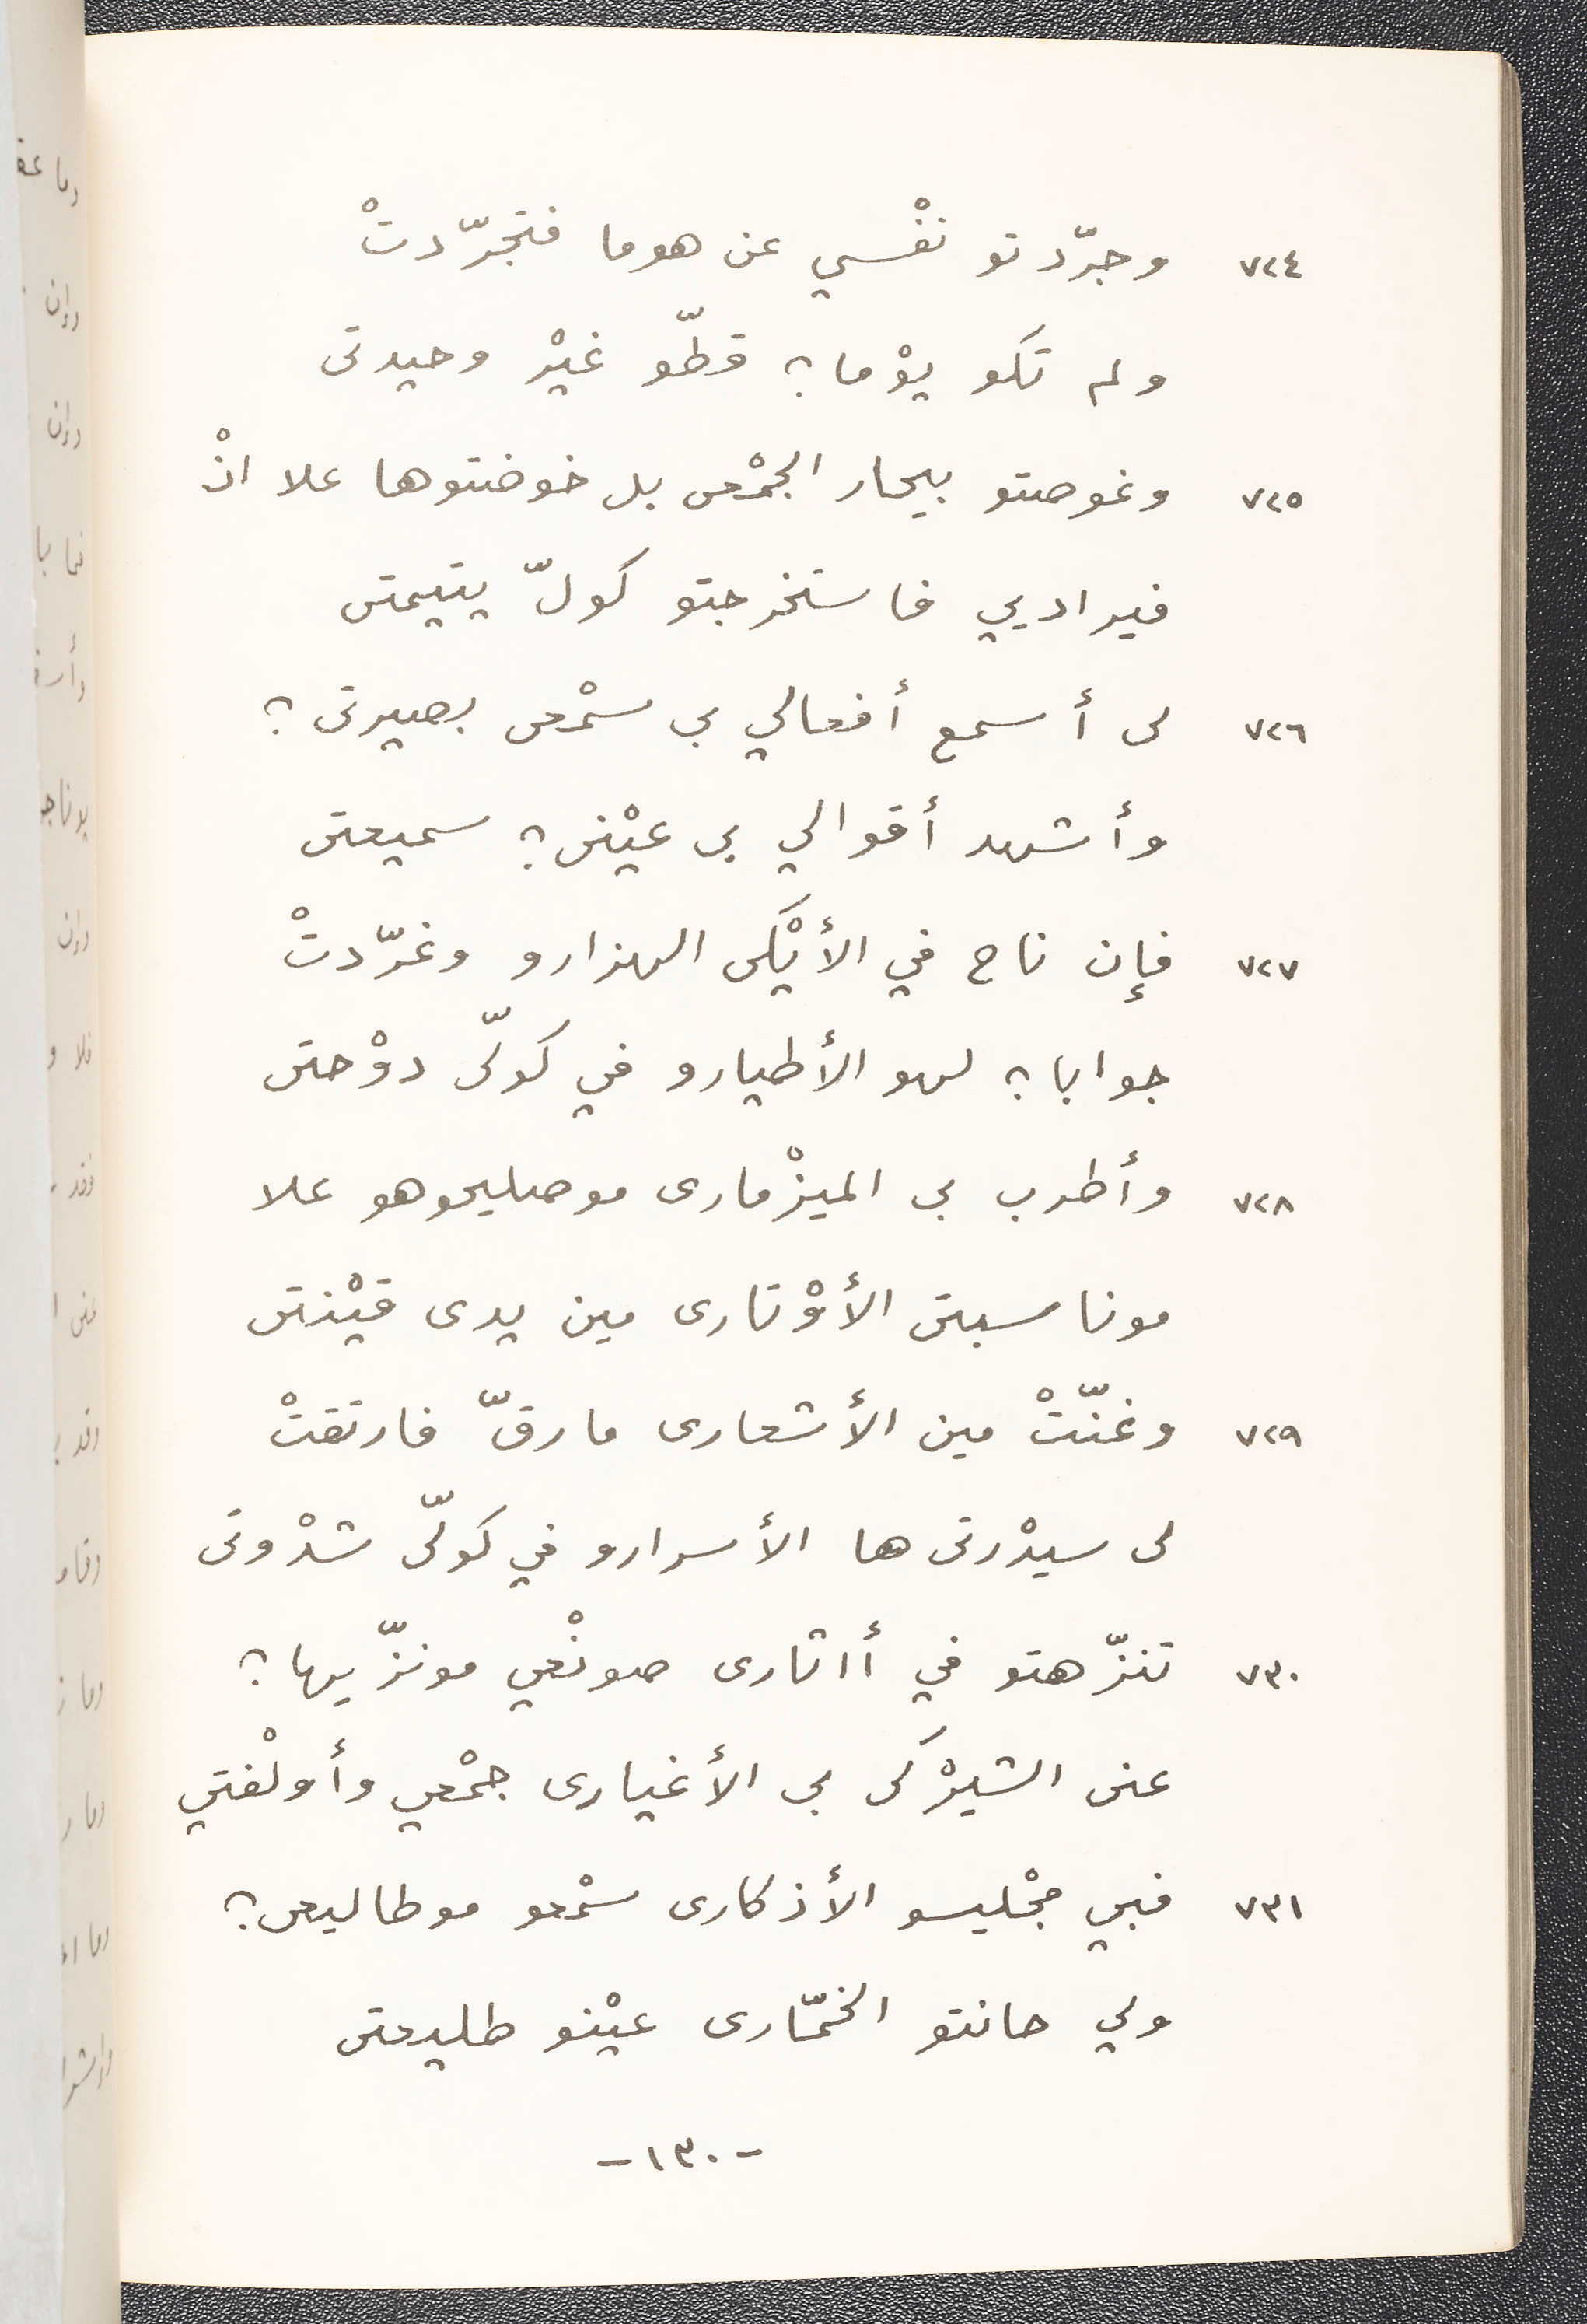 ٧٢٤ وجرّدتو نفْسي عن هوما فتجرّدتْ
ولم تكو يوْما؟ قطّو غيْر وحيدتى
٧٢٥ وغوصتو بيحار الجمْعى بل خوضتوها علا انْ
فيراديي فاستخرجتو كولّ يتيمتى
٧٢٦ لى أسمع أفعالي بى سمْعى بصيرتى؟
وأشهد أقوالي بى عيْنى؟ سميعتى
٧٢٧ فإن ناح في الأيْكى الهزارو وغرّدتْ
جوابا؟ لهو الأطيارو في كولّى دوْحتى
٧٢٨ وأطرب بى الميزْمارى موصليحوهو علا
موناسبتى الأوْتارى مين يدى قيْنتى
٧٢٩ وغنّتْ مين الأشعارى مارقّ فارتقتْ
لى سيدْرتى ها الأسرارو في كولّى شدْوتى
٧٣٠ تنزّهتو في أاثارى صونْعي مونزّيها؟
عنى الشيرْكى بى الأغيارى جمْعي وأولْفتي
٧٣١ فبي مجْليسو الأذكارى سمْعو موطاليعى؟
ولي حانتو الخمّارى عيْنو طليعتى
-١٣٠-